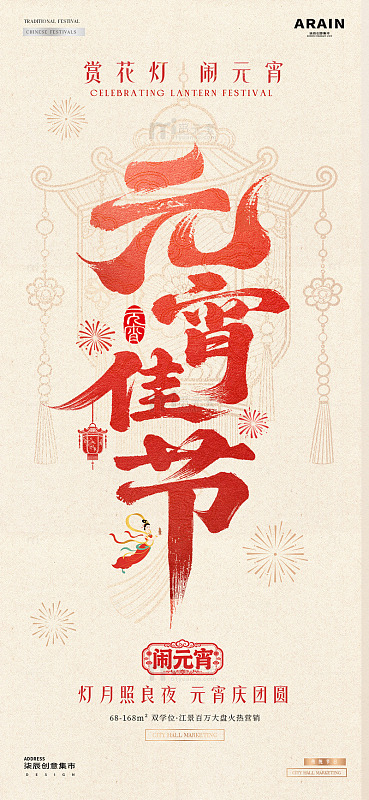 TRADITIONAL FESTIVAL
CHINESE FESTIVALS
ARAIN
柒辰创意集市
赏花灯 闹元宵
CELEBRATING LANTERN FESTIVAL
元宵佳节
元宵
闹元宵
灯月照良夜 元宵庆团圆
68-168m² 双学位·江景百万大盘火热营销
CITY HALL MARKETING
ADDRESS
柒辰创意集市
DESIGN
CITY HALL MARKETING